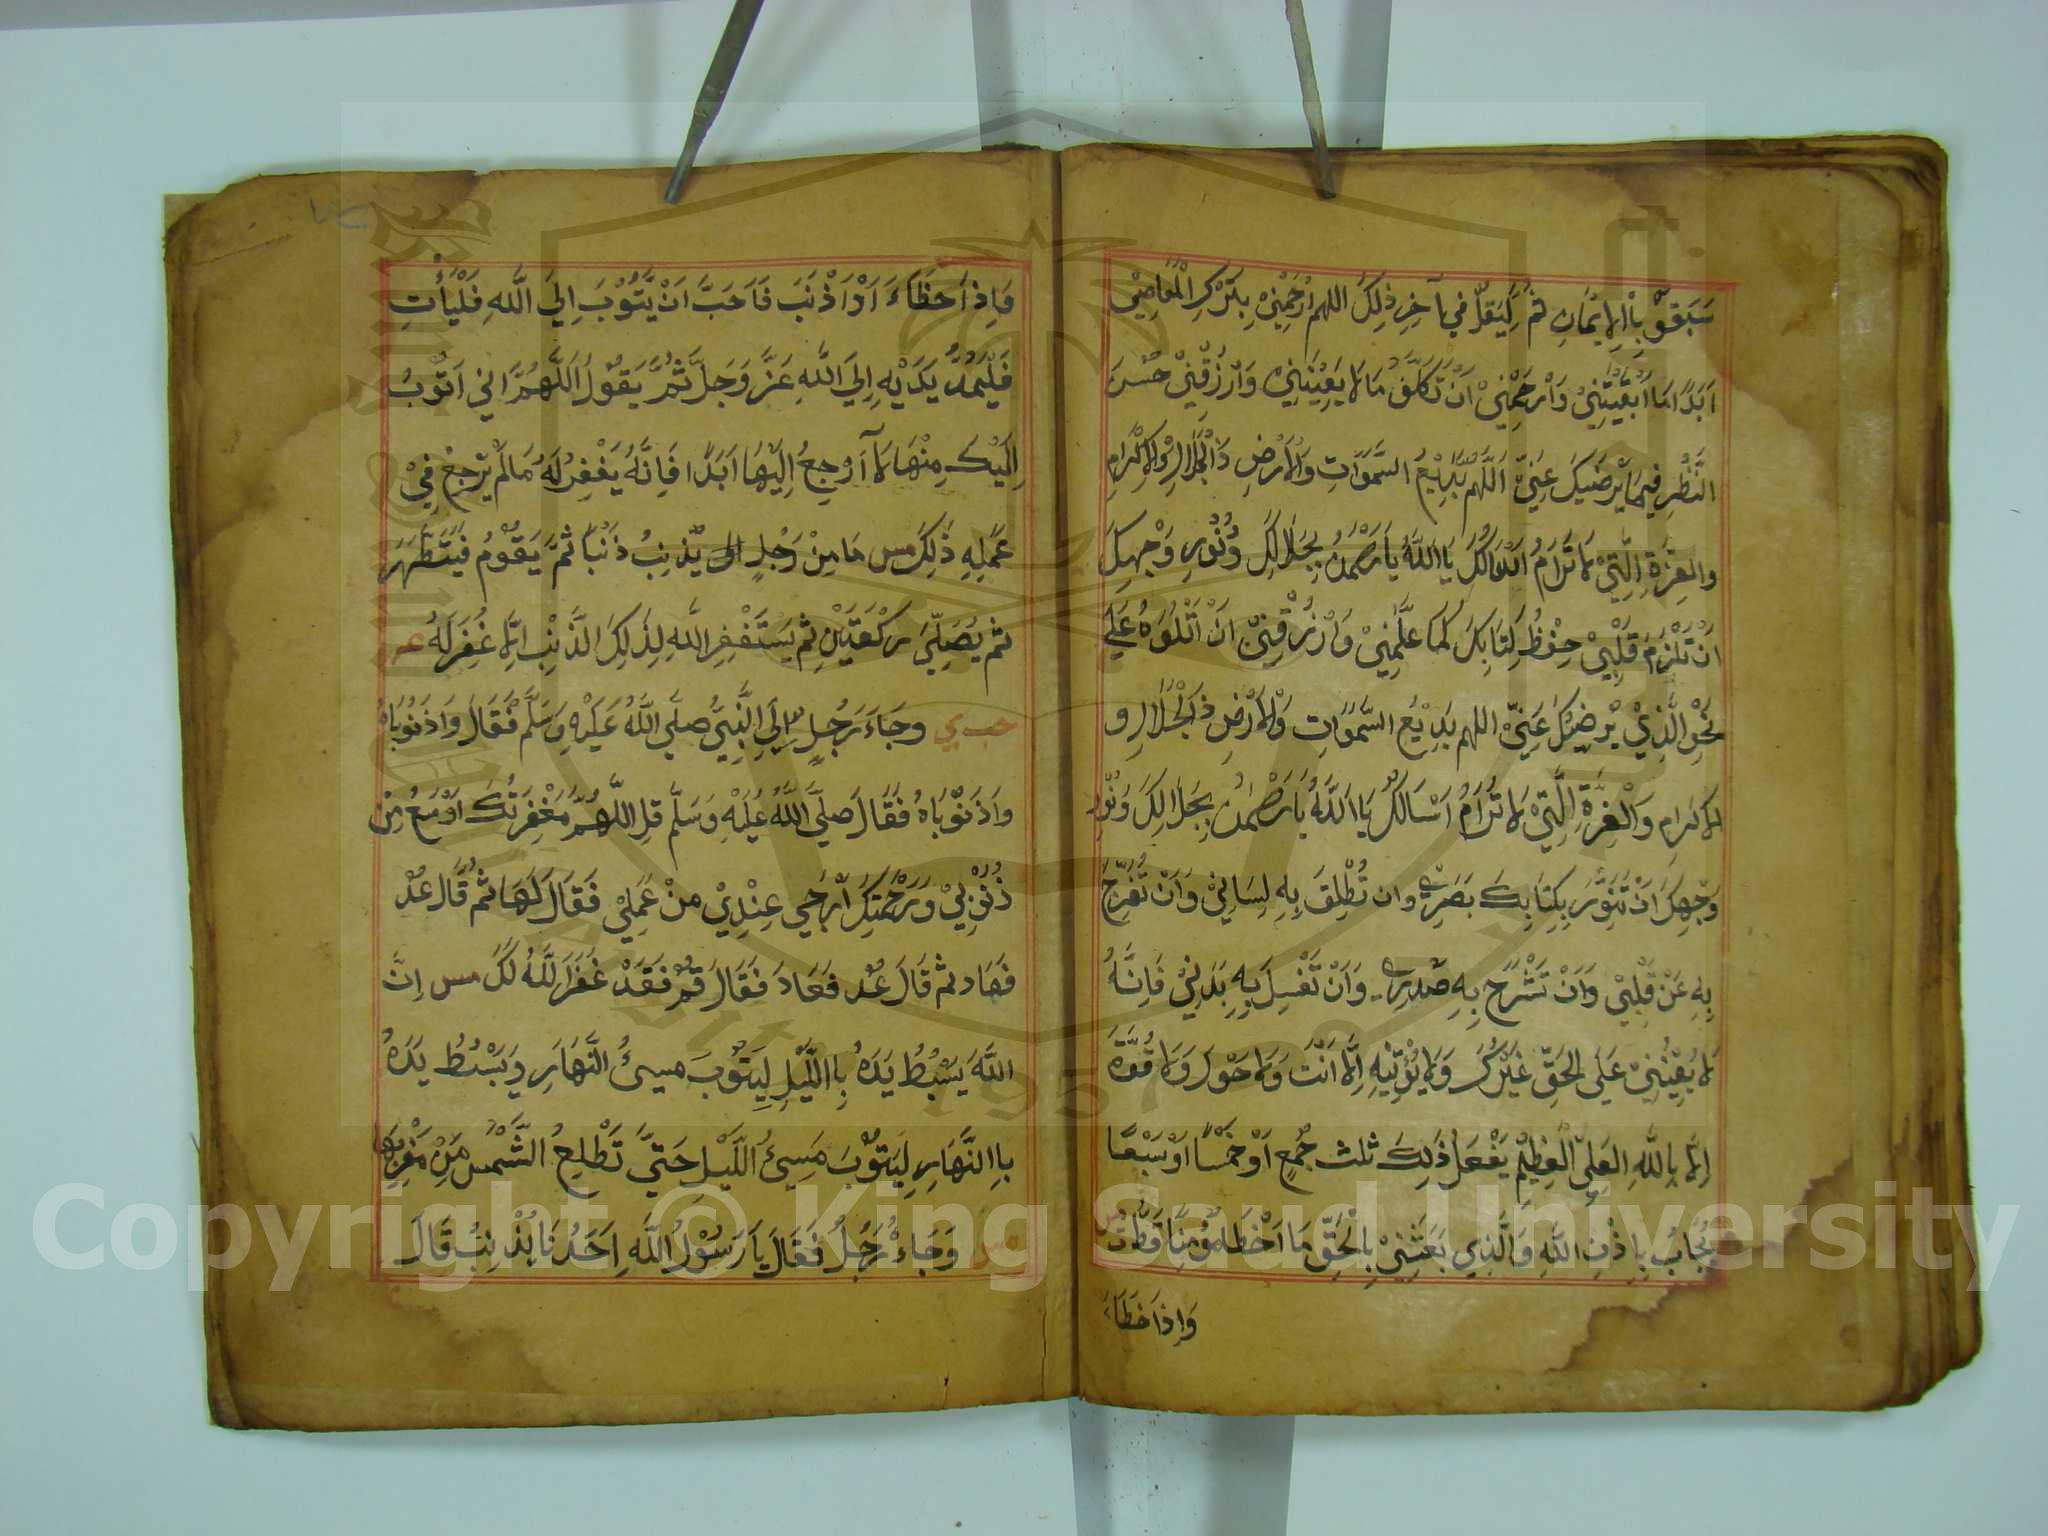 سَبَقُوْنَا بِاْلاِيْمَانِ ثُمَّ لْيَقُلْ فِي آخِرِ ذٰلِكَ اللهم ارْحَمْنِيْ بِتَرْكِ الْمَعَاصِيْ
اَبَدًا مَا اَبْقَيْتَنِيْ وَارْحَمْنِيْ اَنْ تَكَلَّفَ مَا لَا يَعْنِيْنِيْ وَارْزُقْنِيْ حُسْنَ
النَّظْرِ فِيْمَا يُرْضِيْكَ عَنِيّْ اَللّٰهُمَّ بَدِيْعُ السَّمٰوَاتِ وَالْاَرْضِ ذَالْجَلَالِ وَالْاِكْرَامِ
والعِزَّةِ الَّتِيْ لَا تَرَامُ اَسْاَلُكَ يَا اَللَّهُ يَا رَحْمٰنُ بِجَلَالِكَ وَنُوْرِ وَجْهِكَ
اَنْ تَلْزَمَ قَلْبِيْ حِفْظَ كِتَابِكَ كَمَا عَلَّمْتَنِيْ وَارْزُقْنِيْ اَنْ اَتْلُوَهُ عَلٰي
نَحْوِ الَّذِيْ يُرْضِيْكَ عَنِيّْ اللهم بَدِيْعُ السَّمٰوَاتِ وَالْاَرْضِ ذَالْجَلَالِ و
الاكرَامِ وَالْعِزَّةِ الَّتِيْ لَا تُرَامُ اَسْاَلُكَ يَا اَللَّهُ يَا رَحْمٰنُ بِجَلَالِكَ وَنُوْرِ
وَجْهِكَ اَنْ تُنَوِّرَ بِكِتَابِكَ بَصَرِيْ وان تُطْلِقَ بِهِ لِسَانِيْ وَاَنْ تُفَرِّجَ
بِهِ عَنْ قَلْبِيْ وَاَنْ تَشْرَحَ بِهِ صَدْرِيْ وَاَنْ تَغْسِلَ بِهِ بَدَنِيْ فَاِنَّهُ
لَا يُعِيْنُنِيْ عَلَى الحَقِّ غَيْرُكَ وَلَا يُؤْتِيْهِ اِلَّا اَنْتَ وَلَا حَوْلَ وَلَا قُوَّةَ
اِلَّا بِاللَّهِ العَلِيِّ الْعَظِيْمِ يَفْعَلُ ذٰلِكَ ثلث جُمَعٍ اَوْ خَمْسًا اَوْ سَبْعًا
يُجَابُ بِاِذْنِ اللَّهِ وَالَّذِي بَعَثَنِيْ بِالْحَقِّ مَا اَخْطَا مُؤْمِنًا قَطُّ ت مس
وَاِذَا خَطَاءَ
وَاِذ اَحظَاءَ اَوْ اَذْنَبَ فَاَحَبَّ اَنْ يَّتُوْبَ اِلَي اللَّهِ فَلْيَأْتِ
فَلْيَمُدَّ يَدَيْهِ اِلَي اللَّهِ عَزَّ وَجَلَّ ثُمَّ يَقُوْلُ اَللّٰهُمَّ اِنِي اَتُوْبُ
اِلَيْكَ مِنْهَا لَا اَرْجِعُ اِلَيْهَا اَبَدًا فَاِنَّهُ يَغْفِرُ لَهُ مَا لَمْ يَرْجِعْ فِيْ
عَمَلِهِ ذٰلِكَ مس مَا مِنْ رَجُلٍ يُذْنِبُ ذَنْبًا ثُمَّ يَقُوْمُ فَيَتَطَهَّرَ
ثم يُصَلِّيَ ركْعَتَيْنِ ثم يَسْتَغْفِرِ اللَّهِ لِذٰلِكَ الذَّنْبِ اِلَّا غُفِرَ لَهُ عه
حب ي وجَاءَ رَجُلٍ اِلَي النَّبِيِّ صلَّي اللَّهُ عَلَيْهِ وَسَلَّمَ فَقَالَ وَاذُنُوْبَاهُ
وَاذَنُوْبَاهُ فَقَالَ صلَّي اللَّهُ عَلَيْهِ وَسَلَّمَ قل اللّٰهُمَّ مَغْفِرَتُكَ اَوْسَعُ مِنْ
ذُنُوْبِيْ وَرَحْمَتِكَ اَرْجٰي عِنْدِيْ مِنْ عَمَلِيْ فَقَالَهَا ثُمَّ قَالَ عُدْ
فَعَاد ثم قَالَ عُدْ فَعَادَ فَقَالَ قُمْ فَقَدْ غَفَرَ اللَّهُ لَكَ مس اِنَّ
اللَّهَ يَبْسُطُ يَدَهُ بِاللَّيْلِ لِيَتُوْبَ مسِيئُ النَّهَارِ وَيَبْسُطُ يَدَهُ
بِاالنَّهَارِ لِيَتُوْبَ مَسِيئُ اللَّيْلِ حَتَّي تَطْلِعُ الشَّمْسُ مِنْ مَغْرِبِهَا
مس وَجَاءَ رَجُلٌ فَقَالَ يَا رَسُوْلَ اللَّهِ اَحَدُنَا يُذْنِبُ قَالَ
Copyright © King Saud University
1957